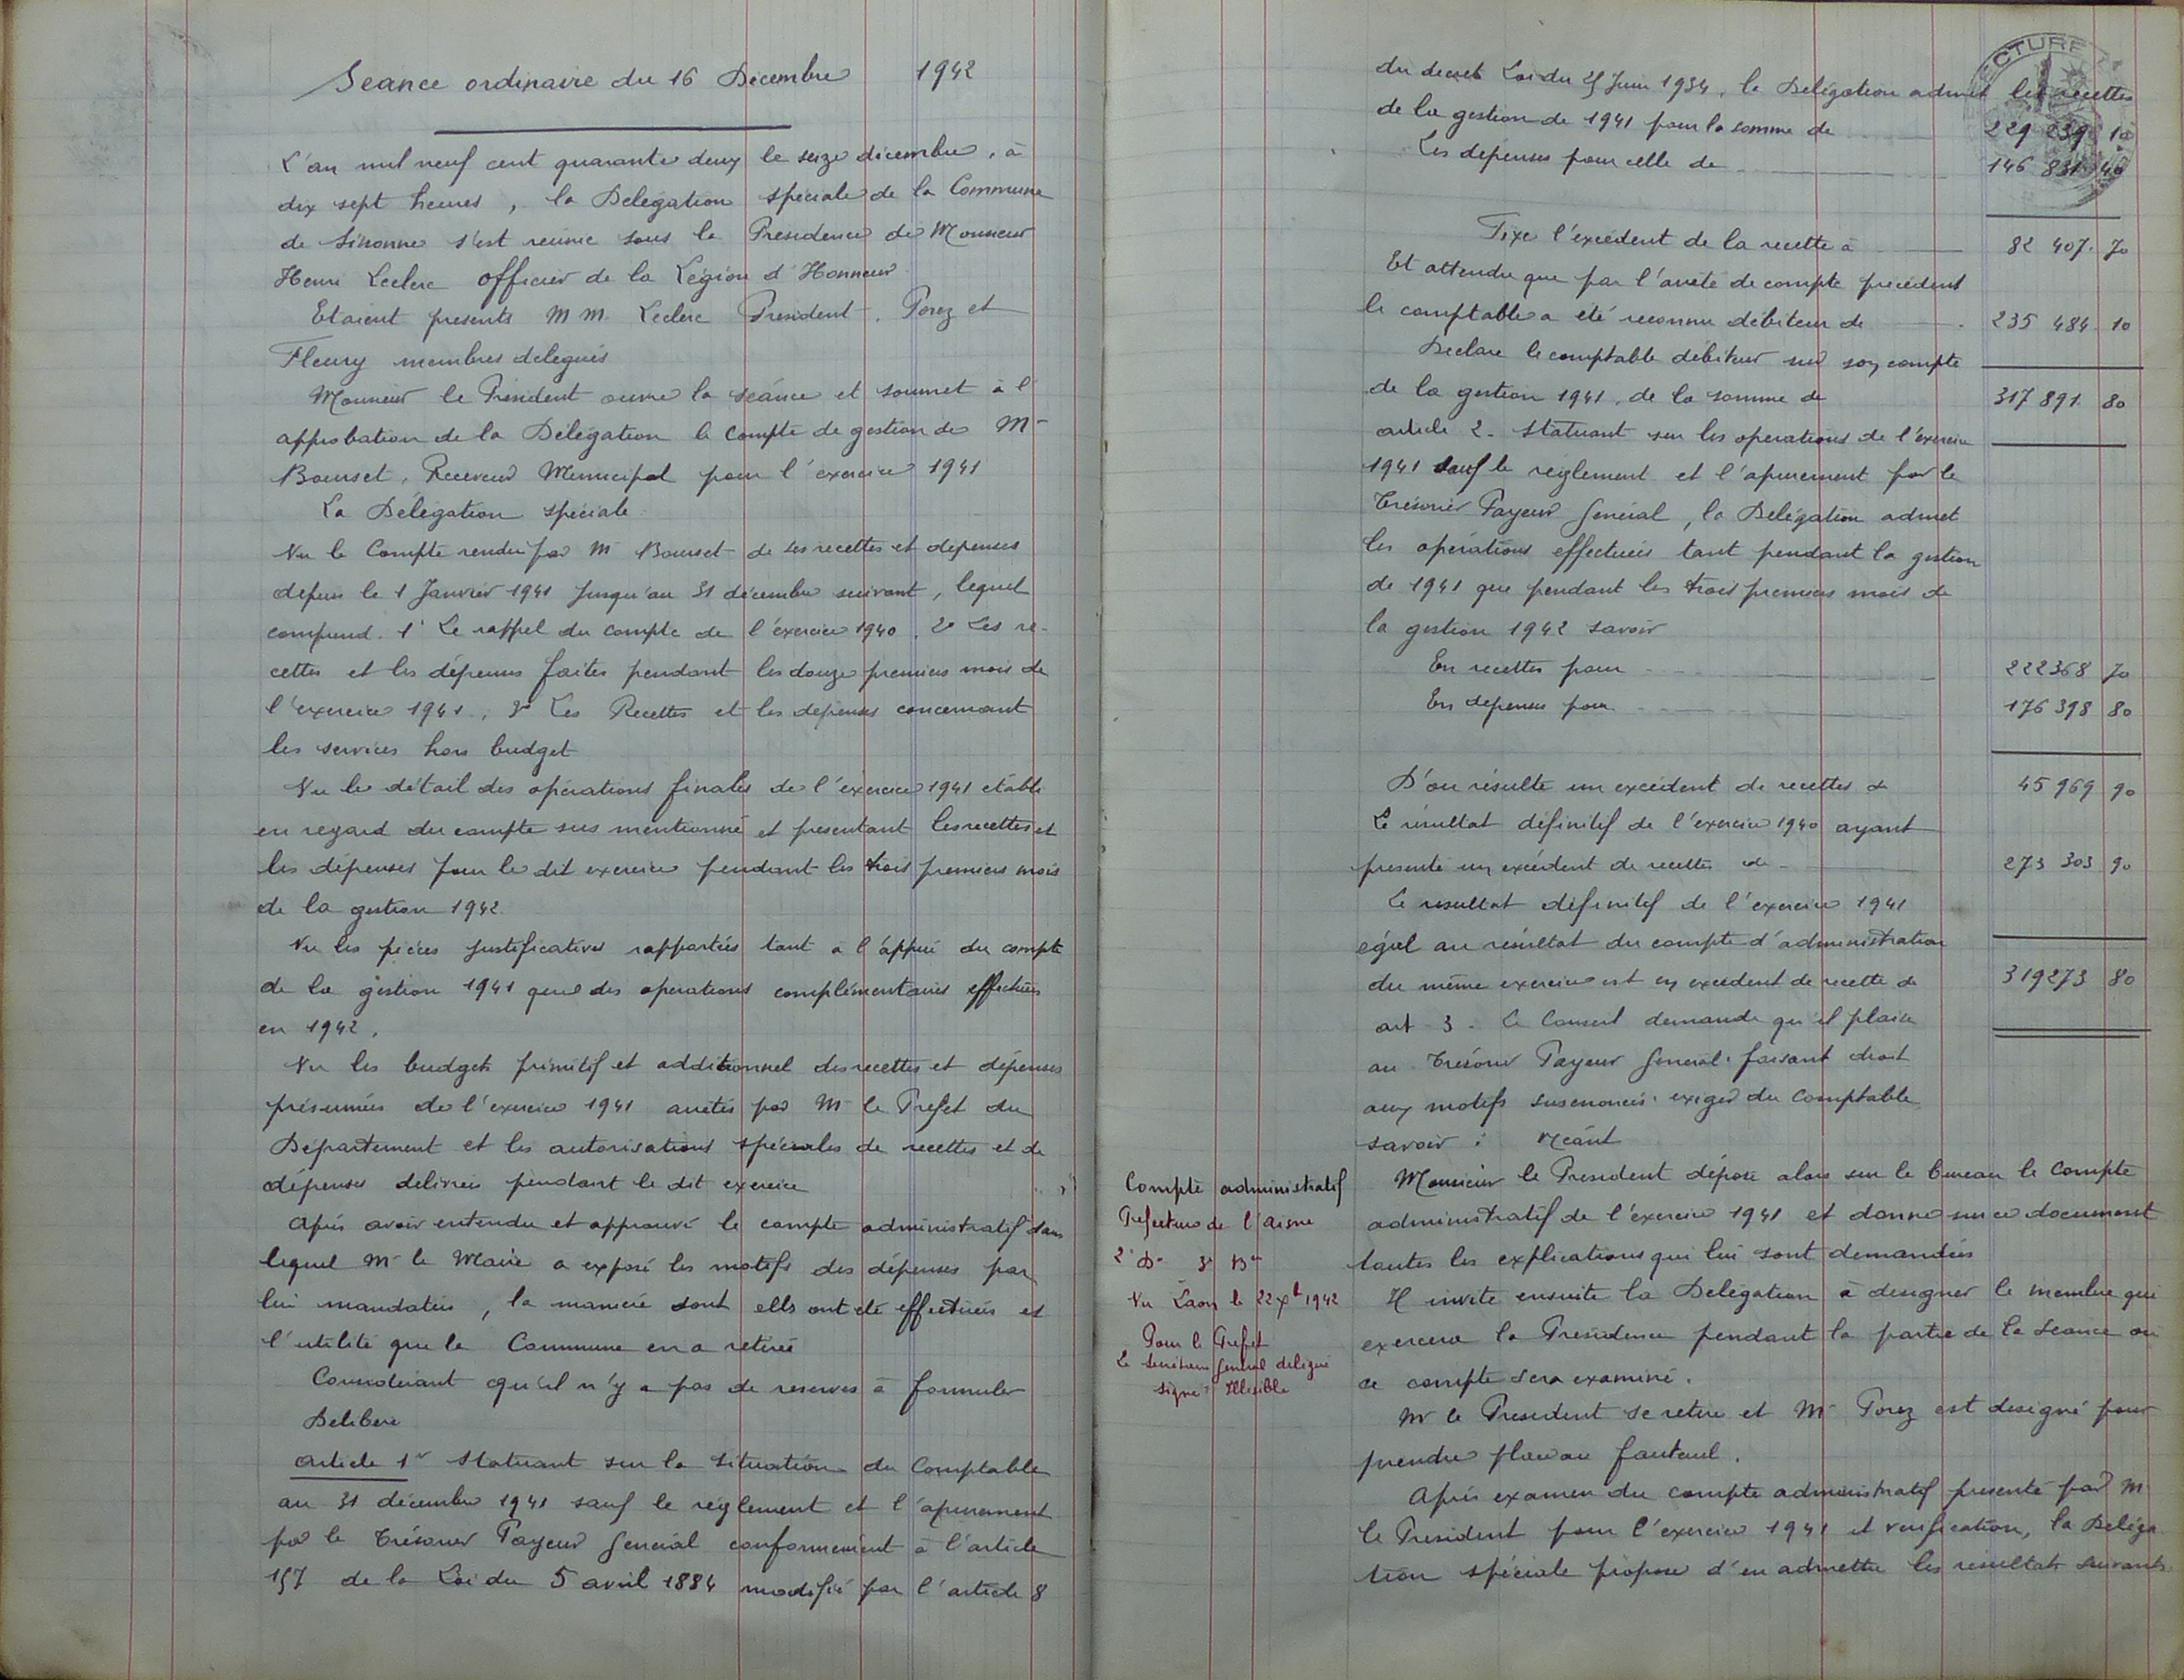 Seance ordinaire du 16 Décembre 1942
L'an mil neuf cent quarante deux le seize décembre, à
dix sept heures, la Délégation spéciale de la Commune
de Sissonne s'est réunie sous la Présidence de Monsieur
Henri Leclerc officier de la Légion d'Honneur
Etaient présents MM. Leclerc Président, Porez et
Fleury membres délégués
Monsieur le Président ouvre la séance et soumet à l'
approbation de la Délégation le compte de gestion de Mr
Bourset, Receveur Municipal pour l'exercice 1941
La Délégation spéciale
Vu le Compte rendu par Mr Bourset de ses recettes et dépenses
depuis le 1 Janvier 1941 jusqu'au 31 décembre suivant, lequel
comprend. 1° Le rappel du compte de l'exercice 1940, 2° Les re-
cettes et les dépenses faites pendant les douze premiers mois de
l'exercice 1941, 3° Les Recettes et les dépenses concernant
les services hors budget
Vu le détail des opérations finales de l'éxercice 1941 établi
en regard du compte sus mentionné et présentant les recettes et
les dépenses pour le dit exercice pendant les trois premiers mois
de la gestion 1942.
Vu les pièces justificatives rapportées tant à l'appui du compte
de la gestion 1941 que des opérations complémentaires effectuées
en 1942,
Vu les budgets primitif et additionnel des recettes et dépenses
présumées de l'exercice 1941 arrêtés par Mr le Préfet du
Département et les autorisations spéciales de recettes et de
dépenses délivrées pendant le dit exercice
Après avoir entendu et approuvé le compte administratif dans
lequel Mr le Maire a exposé les motifs des dépenses par
lui mandatées, la manière dont elles ont été effectuées et
l'utilité que la Commune en a retirée
Considérant qu'il n'y a pas de réserves à formuler
Délibère
Article 1er Statuant sur la situation du Comptable
au 31 décembre 1941 sauf le réglement et l'apurement
par le Trésorier Payeur Général conformément à l'article
157 de la Loi du 5 avril 1884 modifié par l'article 8
du decret Loi du 25 Juin 1934, la Délégation admet les recettes
de la gestion de 1941 pour la somme de 229 239 10
Les dépenses pour celle de 146 831 40
Fixe l'excédent de la recette à 82 407. 70
Et attendu que par l'arrêté de compte précédent
le comptable a été reconnu débiteur de 235 484 10
Déclare le comptable débiteur sur son compte
de la gestion 1941, de la somme de 317 891 80
article 2. Statuant sur les opérations de l'exercice
1941 sauf le réglement et l'apurement par le
Trésorier Payeur Général, la Délégation admet
les opérations effectuées tant pendant la gestion
de 1941 que pendant les trois premiers mois de
la gestion 1942 savoir
En recettes pour 222368 70
En dépenses pour 176 398 80
D'ou résulte un excédent de recettes de 45 969 90
Le résultat définitif de l'exercice 1940 ayant
présenté un excédent de recettes de 273 303 90
Le résultat définitif de l'exercice 1941
égal au résultat du compte d'administration
du même exercice est en excédent de recette de 319273 80
art 3. Le Conseil demande qu'il plaise
au Trésorier Payeur Général faisant droit
aux motifs susénoncés exiger du comptable
savoir : Néant
Compte administratif
Préfecture de l'Aisne
2e Don 3e Bau
Vu Laon le 22 Xbre 1942
Pour le Préfet
Le Secrétaire Général délégué
signé: Illisible
Monsieur le Président dépose alors sur le bureau le compte
administratif de l'exercice 1941 et donne sur ce document
toutes les explications qui lui sont demandées
Il invite ensuite la Délégation à désigner le membre qui
exercera la Présidence pendant la partie de la séance où
ce compte sera examiné.
Mr le Président se retire et Mr Porez est désigné pour
prendre place au fauteuil.
Après examen du compte administratif présenté par M.
le Président pour l'exercice 1941 et vérification, la Déléga
tion spéciale propose d'en admettre les résultats suivants